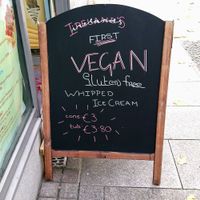 IRELAND'S
FIRST
VEGAN
Gluten free
WHIPPED
ICE CREAM
cone €3
tub €3.80